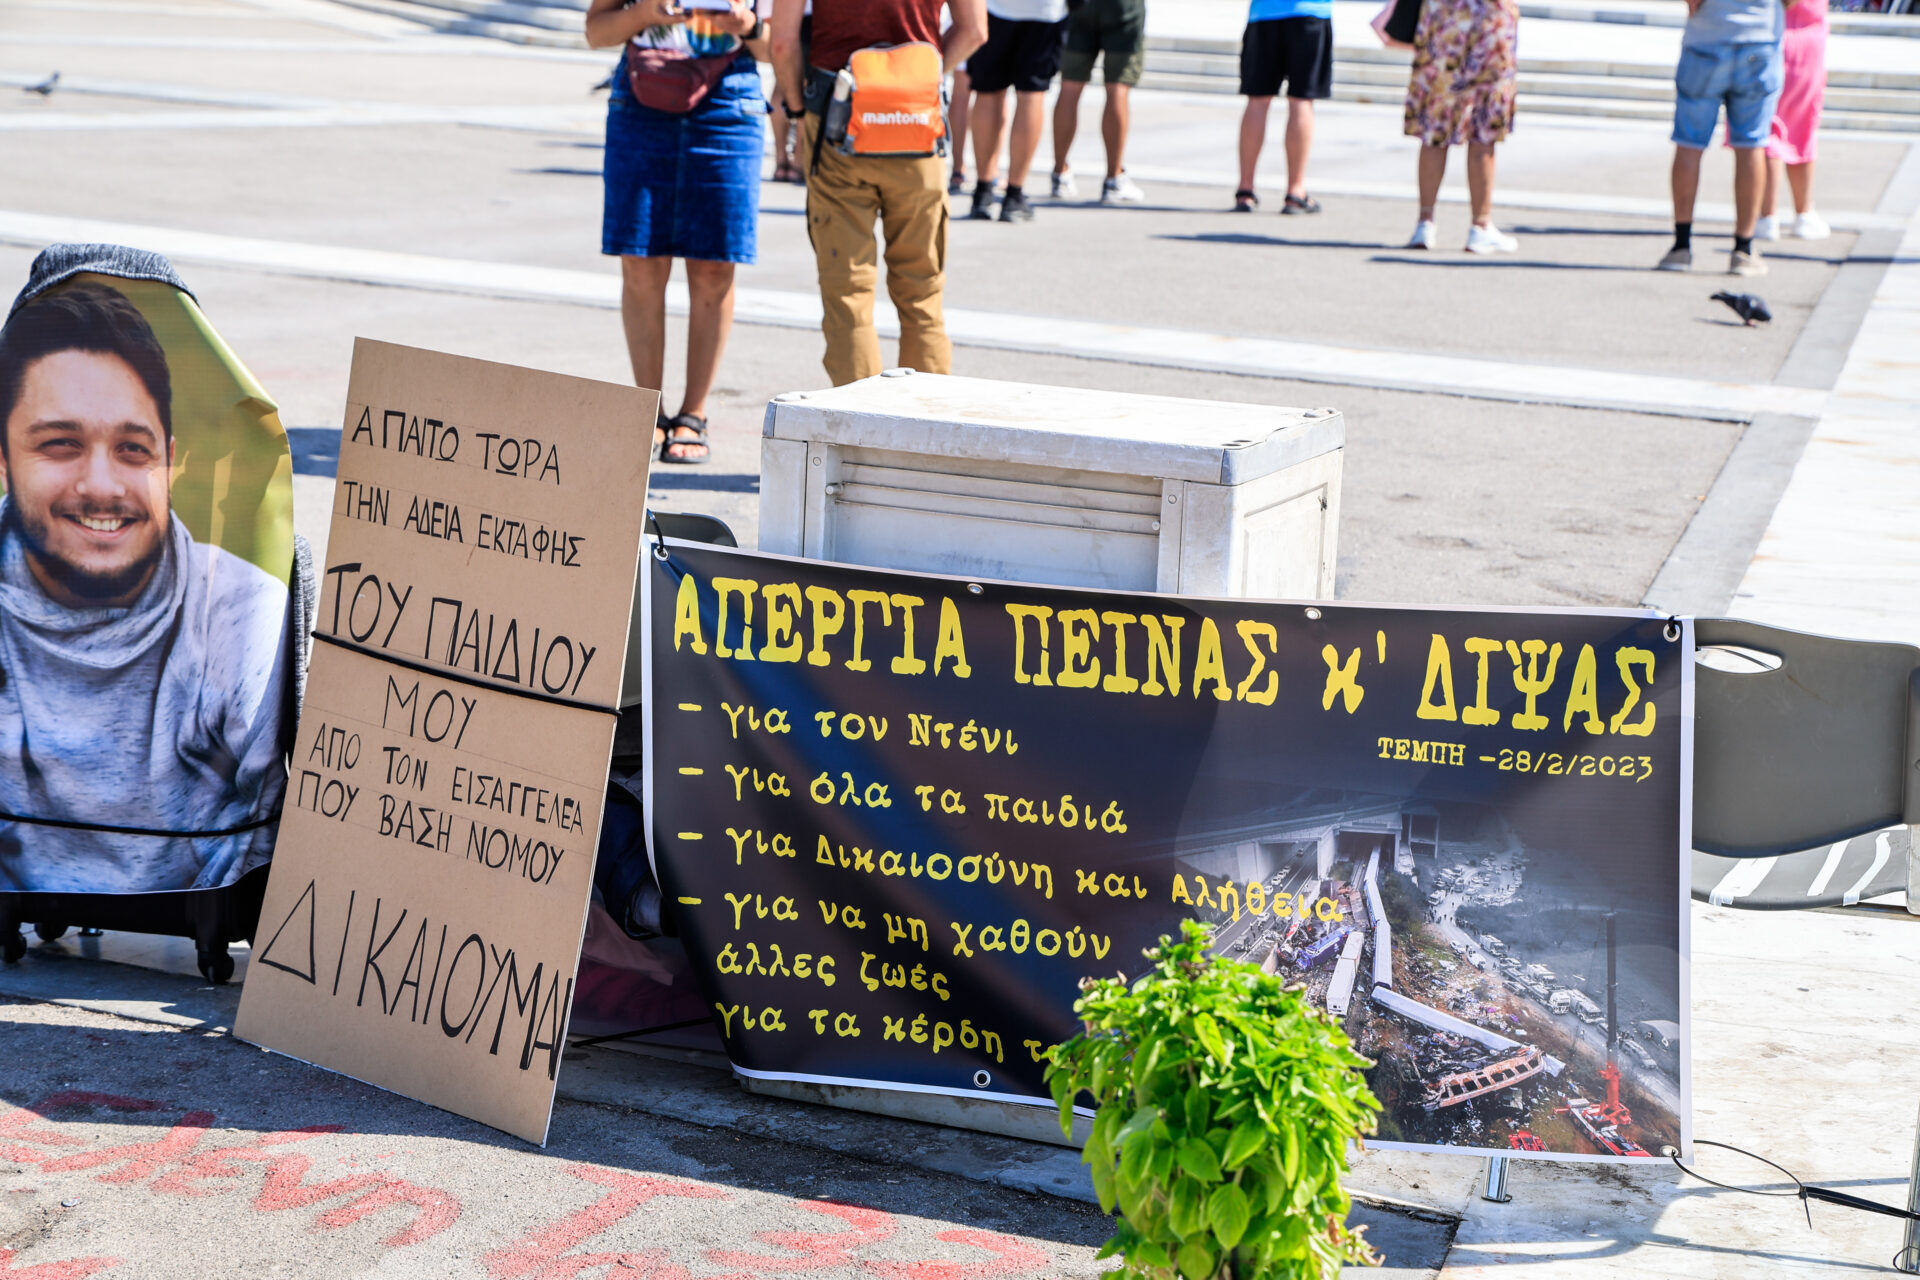 mantona
ΑΠΑΙΤΩ ΤΩΡΑ
ΤΗΝ ΑΔΕΙΑ ΕΚΤΑΦΗΣ
ΤΟΥ ΠΑΙΔΙΟΥ
ΜΟΥ
ΑΠΟ ΤΟΝ ΕΙΣΑΓΓΕΛΕΑ
ΠΟΥ ΒΑΣΗ ΝΟΜΟΥ
ΔΙΚΑΙΟΥΜΑΙ
ΑΠΕΡΓΙΑ ΠΕΙΝΑΣ κ' ΔΙΨΑΣ
ΤΕΜΠΗ -28/2/2023
- για τον Ντένι
- για όλα τα παιδιά
- για Δικαιοσύνη και Αλήθεια
- για να μη χαθούν
άλλες ζωές
για τα κέρδη